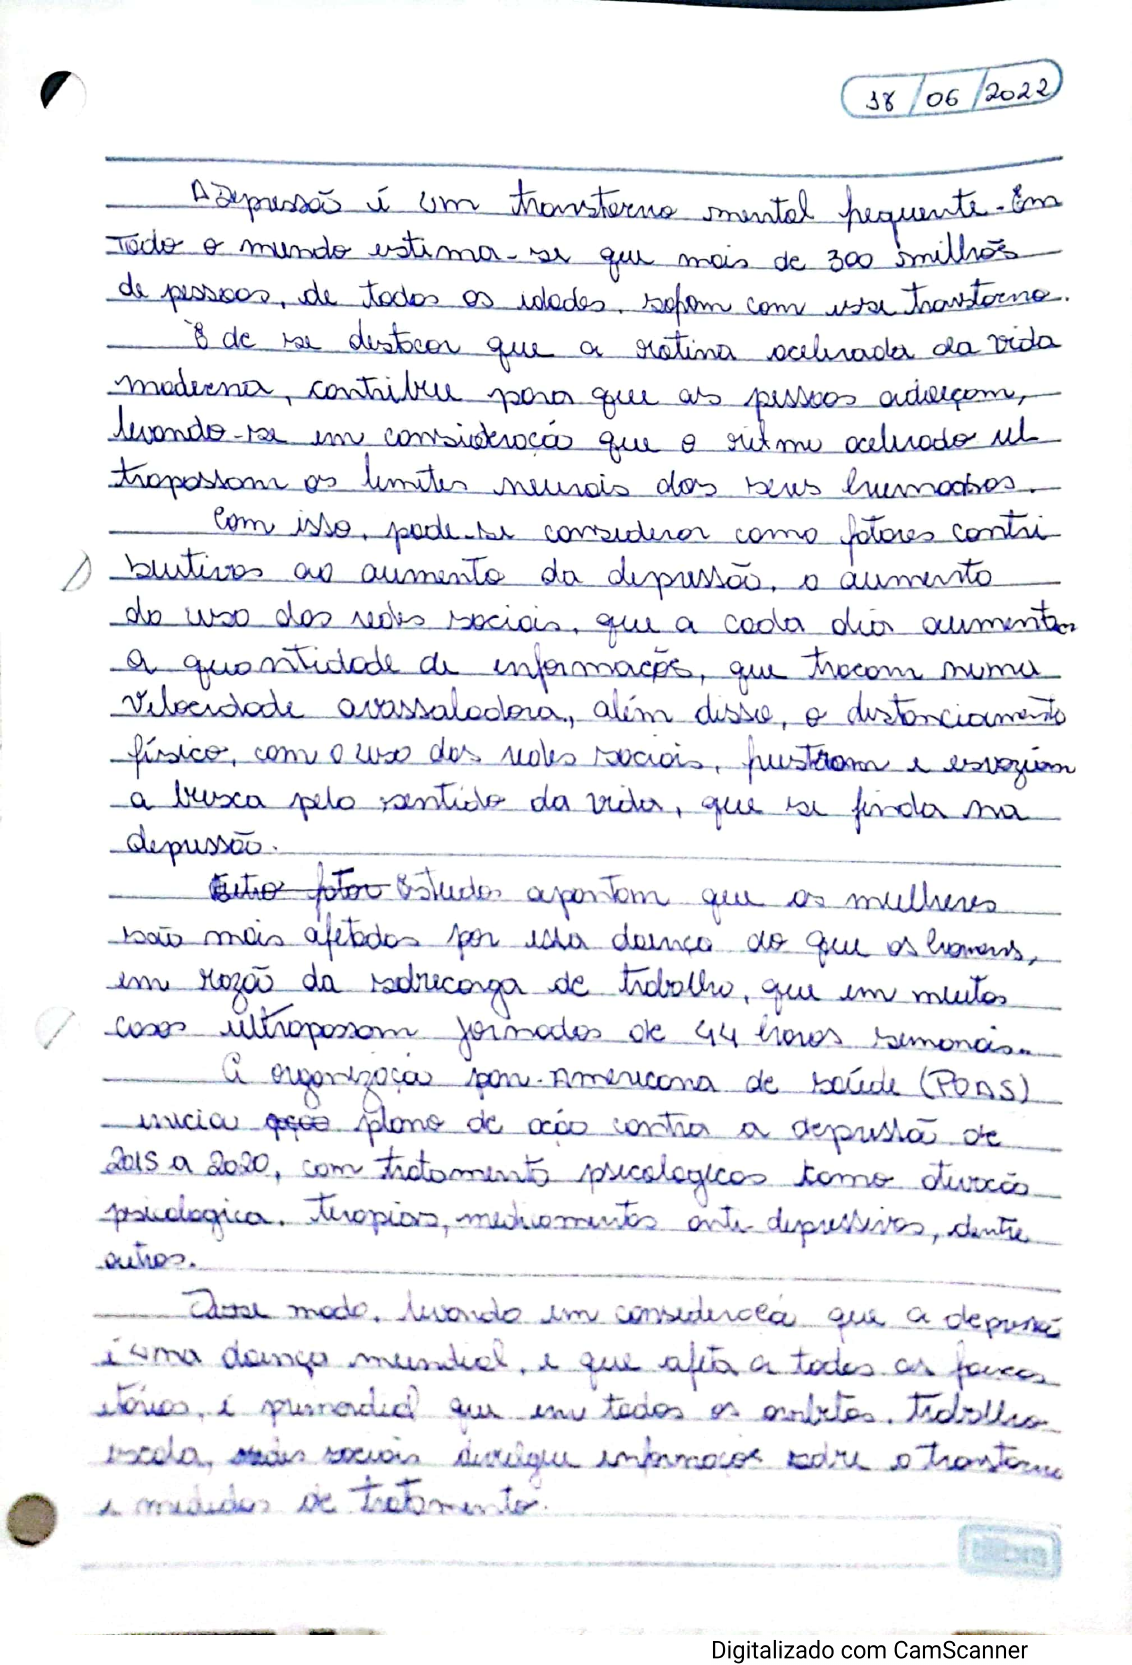 18/06/2022
A Depressão é um transtorno mental frequente. Em
Todo o mundo estima-se que mais de 300 milhõs
de pessoas, de todas as idades, sofem com esse transtorno.
É de se destacar que a rotina acelerada da vida
moderna, contribue para que as pessoas adoeçam,
levando-se em consideração que o ritmo acelerado ul
trapassam os limites neurais dos seus humados.
Com isso, pode-se considerar como fatores contri
butivos ao aumento da depressão, o aumento
do uso das redes sociais, que a cada dia aumenta
a quantidade de informações, que trocam numa
velocidade avassaladora, além disso, o distanciamento
físico, com o uso das redes sociais, frustram e esvaziam
a busca pelo sentido da vida, que se finda na
depressão.
Outro fator Estudos apontam que as mulheres
são mais afetadas por essa doença do que os homens,
em razão da sobrecarga de trabalho, que em muitos
casos ultrapassam jornadas de 44 horas semanais.
A organização pan-Americana de saúde (POAS)
inicia plano de ação contra a depressão de
2015 a 2020, com tratamento psicologicos como
psicologica, terapias, medicamentos anti-depressivos, dentre
outros.
Desse modo, levando em consideração que a depressão
é uma doença mundial, e que afeta a todas as faixas
etárias, é primordial que em todos os ambitos, trabalho
escola, redes sociais divulgue informações sobre o transtorno
e medidas de tratamento.
Digitalizado com CamScanner